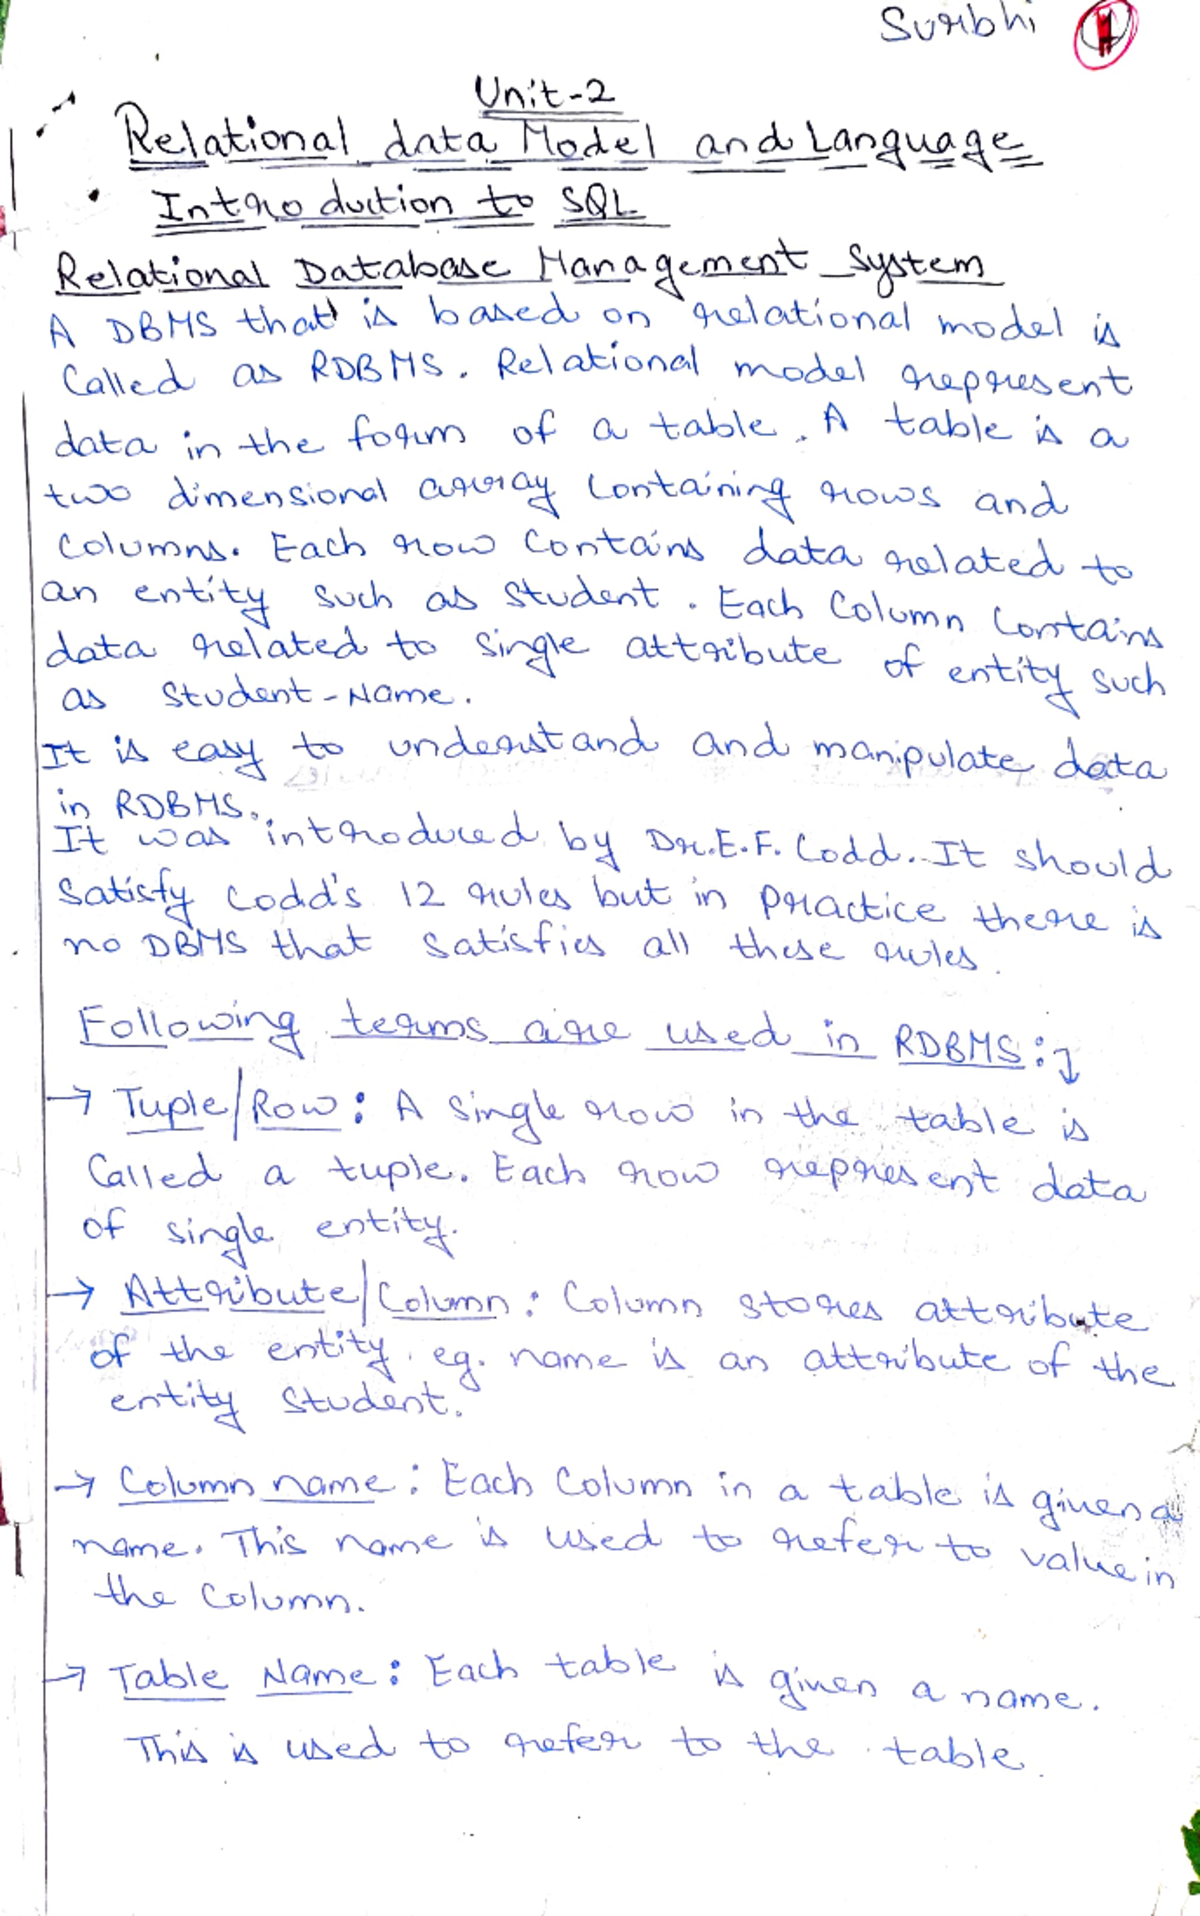 Surbhi 1
Unit-2
Relational data Model and Language
Introduction to SQL
Relational Database Management System
A DBMS that is based on relational model is
Called as RDBMS. Relational model represent
data in the form of a table. A table is a
two dimensional array Containing rows and
Columns. Each row Contains data related to
an entity such as Student. Each Column Contains
data related to single attribute of entity such
as Student-Name.
It is easy to understand and manipulate data
in RDBMS.
It was introduced by Dr.E.F. Codd. It should
Satisfy Codd's 12 rules but in practice there is
no DBMS that satisfies all these rules.
Following terms are used in RDBMS:↓
→ Tuple/Row: A Single row in the table is
Called a tuple. Each row represent data
of single entity.
→ Attribute/Column: Column stores attribute
of the entity. eg. name is an attribute of the
entity Student.
→ Column name: Each Column in a table is given a
name. This name is used to refer to value in
the Column.
→ Table Name: Each table is given a name.
This is used to refer to the table.